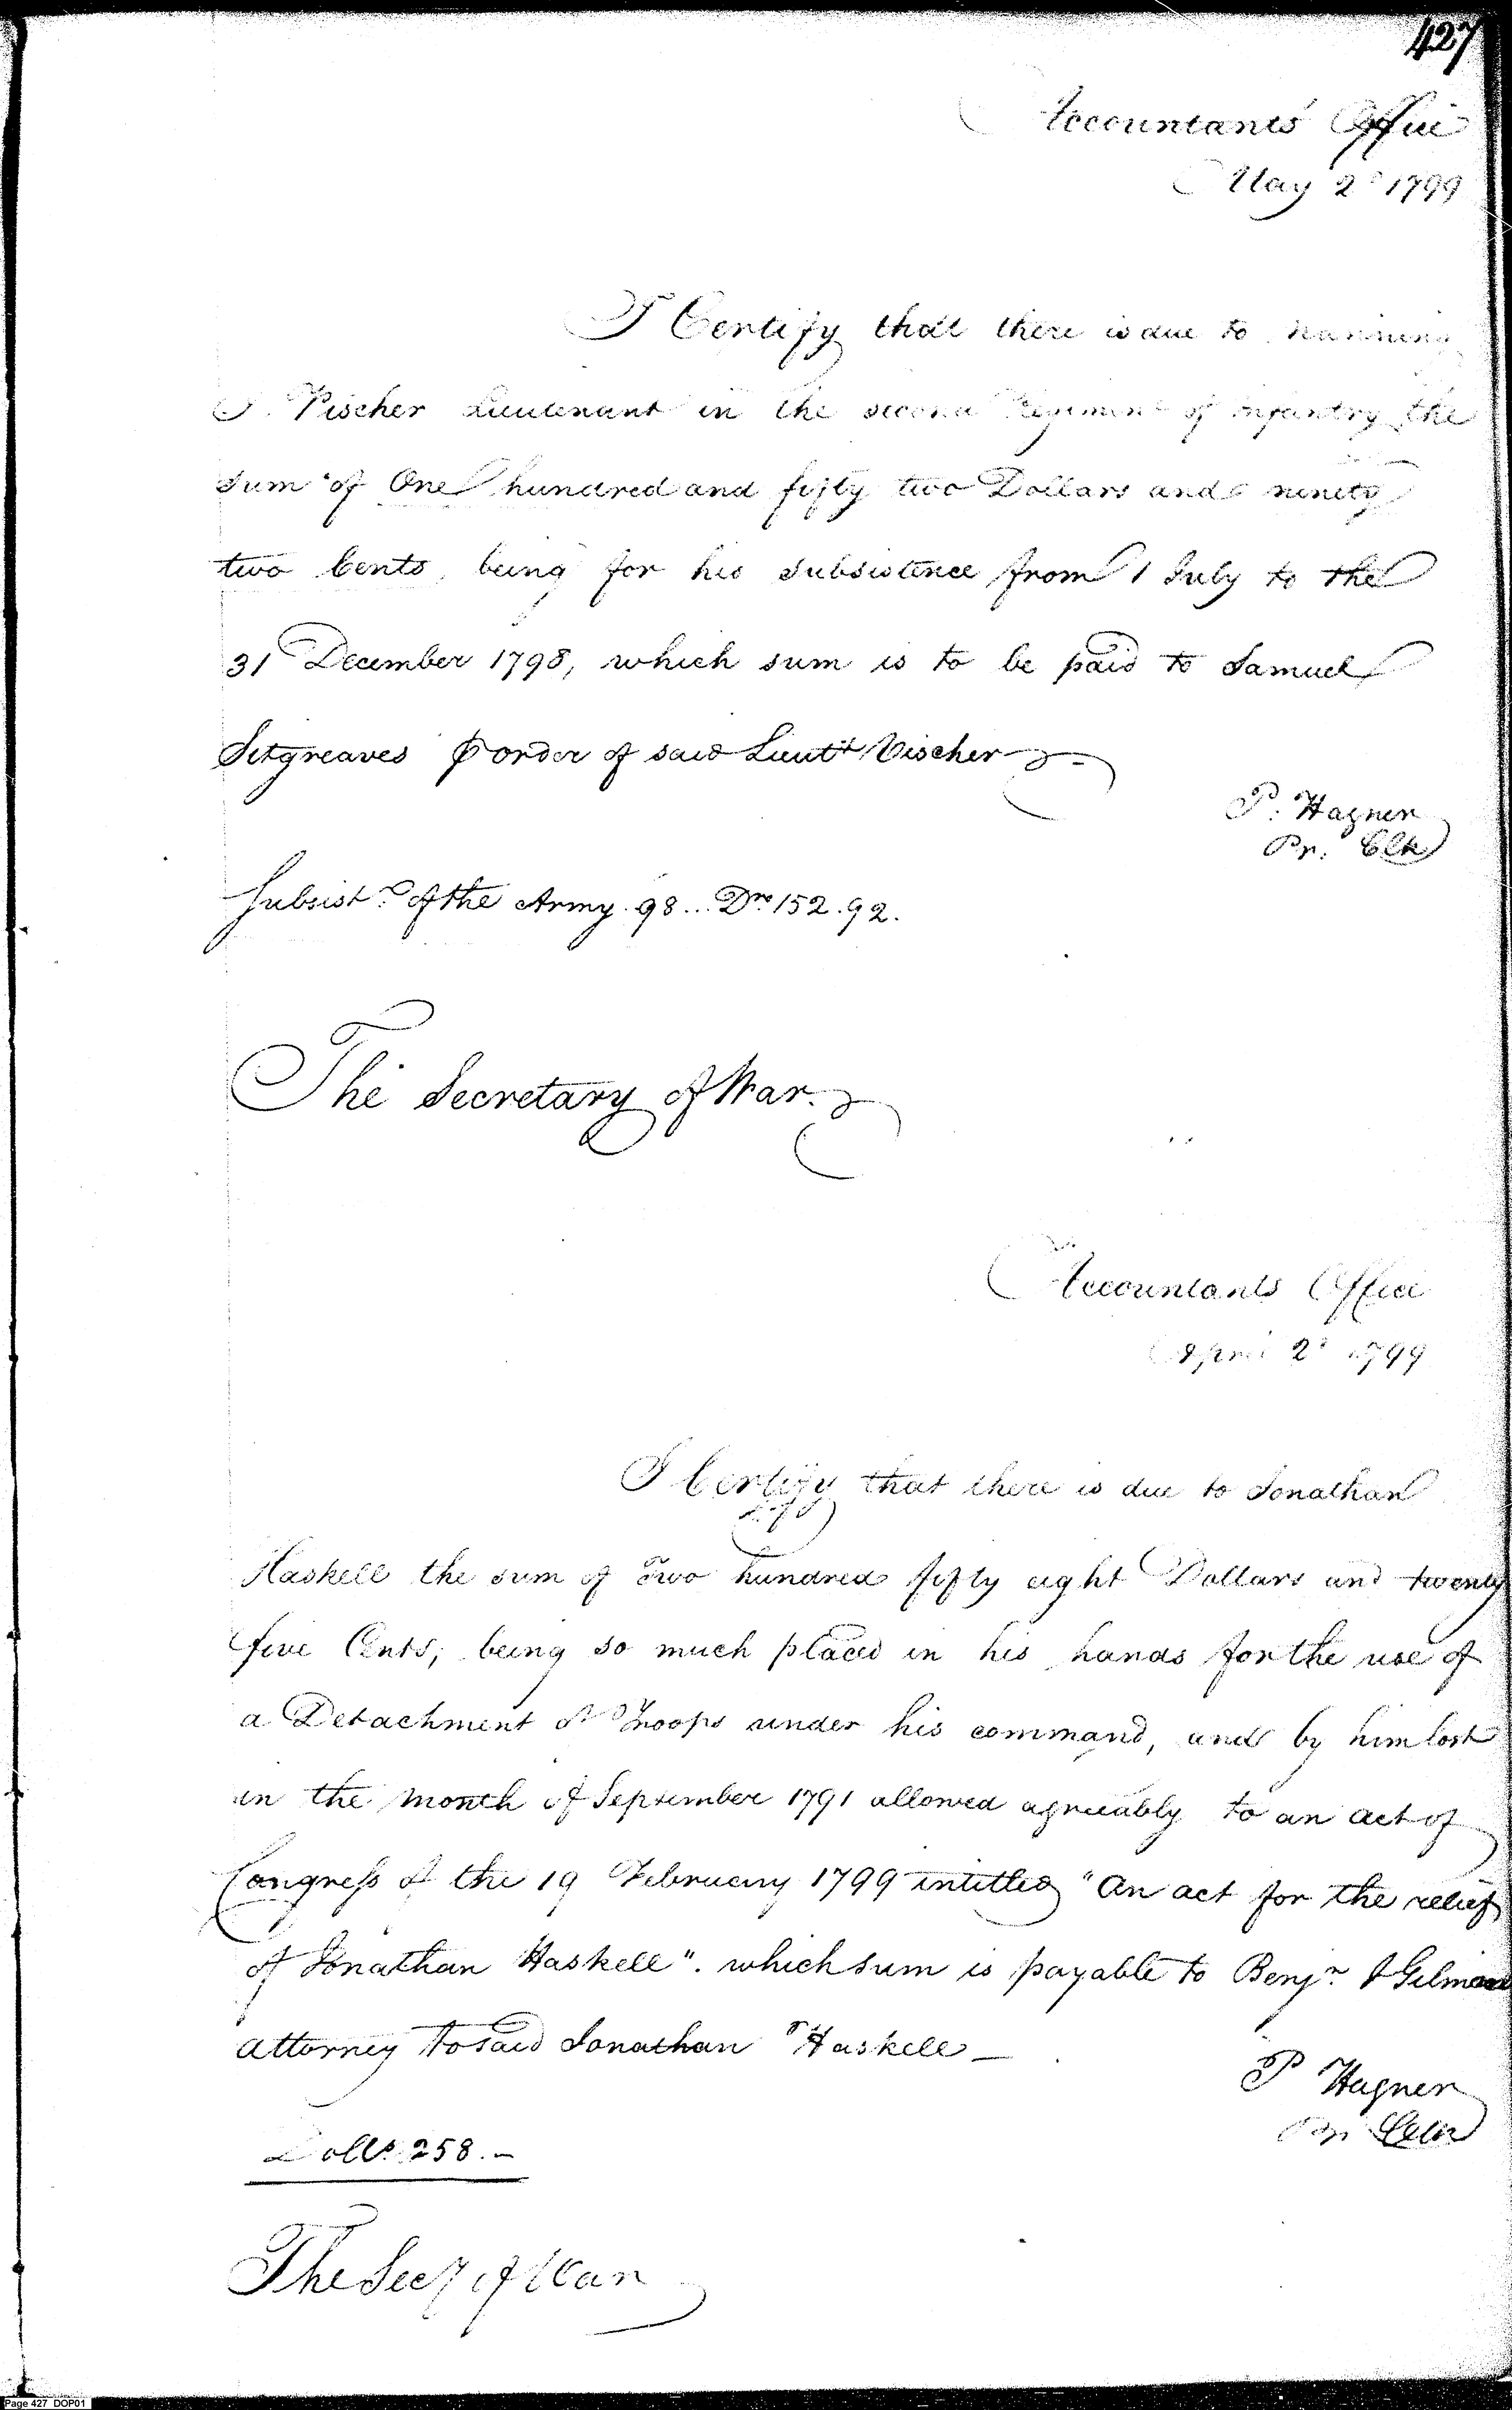 427
Accountants Office
May 2d 1799
I Certify that there is due to Nanning
I. Vischer Lieutenant in the second Regiment of infantry the
sum of One hundred and fifty two Dollars and ninety
two Cents, being for his subsistence from 1 July to the
31 December 1798, which sum is to be paid to Samuel
Sitgreaves ⅌ order of said Lieutt Vischer
P. Hagner
Pr. Clk
Subsist. of the Army. 98... Drs 152.92.
The Secretary of War.
Accountants Office
April 2d 1799
I Certify that there is due to Jonathan
Haskell the sum of Two hundred fifty eight Dollars and twenty
five Cents; being so much placed in his hands for the use of
a Detachment of Troops under his command, and by him lost
in the month of September 1791 allowed agreeably to an act of
Congress of the 19 February 1799 intitled "An act for the relief
of Jonathan Haskell". which sum is payable to Benjn. I Gilman
attorney to said Jonathan Haskell —
P Hagner
Pr Clk
Dolls. 258.—
The Secy of War
Page 427 DOP01